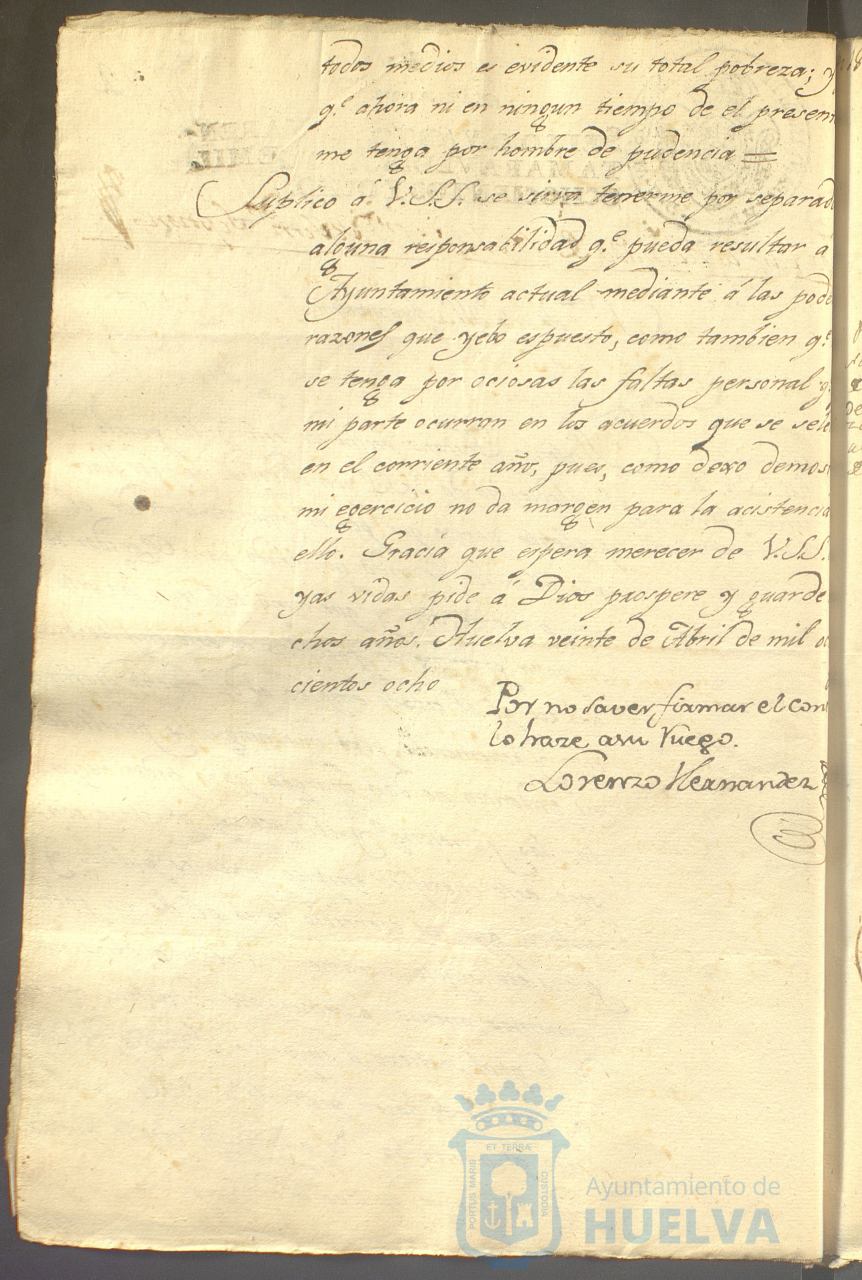 todos medios es evidente su total pobreza; y
q.e ahora ni en ningun tiempo de el presen
me tenga por hombre de pudencia =
Suplico á V.S.S. se sirva tenerme por separad
alguna responsabilidad q.e pueda resultar á
Ayuntamiento actual mediante á las pode
razones que yebo espuesto, como tambien q.e
se tenga por ociosas las faltas personal q
mi parte ocurran en los acuerdos que se sele
en el corriente año, pues, como dexo demos
mi egercicio no da margen para la acistencia
ello. Gracia que espera merecer de V.S.S.
yas vidas pide á Dios prospere y guarde
chos años. Huelva veinte de Abril de mil o
cientos ocho
Por no saver firmar el con
lo haze asu Ruego.
Lorenzo Hernandez
ET TERRÆ
PORTUS MARIS
CUSTODIA
Ayuntamiento de
HUELVA